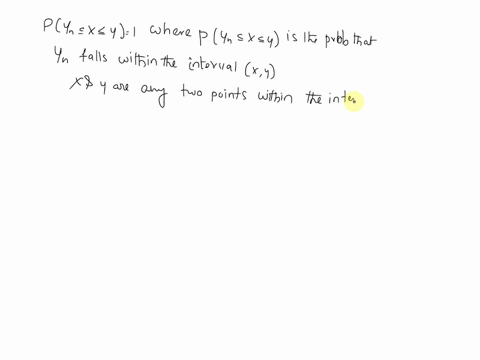 P(yn ≤ x ≤ y)=1 where p(yn ≤ x ≤ y) is the prob that
yn falls within the interval (x,y)
x & y are any two points within the inte